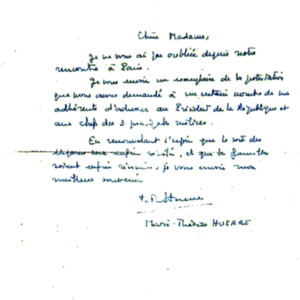 Chère Madame,
Je ne vous ai pas oubliée depuis notre
rencontre à Paris.
Je vous envoie un exemplaire de la protestation
que nous avons demandé à un certain nombre de nos
adhérents d'adresser au Président de la République et
aux chefs des 3 principales
En renouvelant l'espoir que le sort des
soit enfin et que les familles
soient enfin réunies, je vous envoie mon
meilleur souvenir
Marie-Thérèse HUERRE